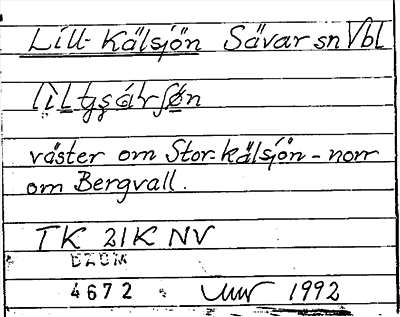 Lill-Kälsjön Sävar sn Vbl
väster om Stor-kälsjön - norr
om Bergvall.
TK 21K NV
DZDM
4672 Umr 1992